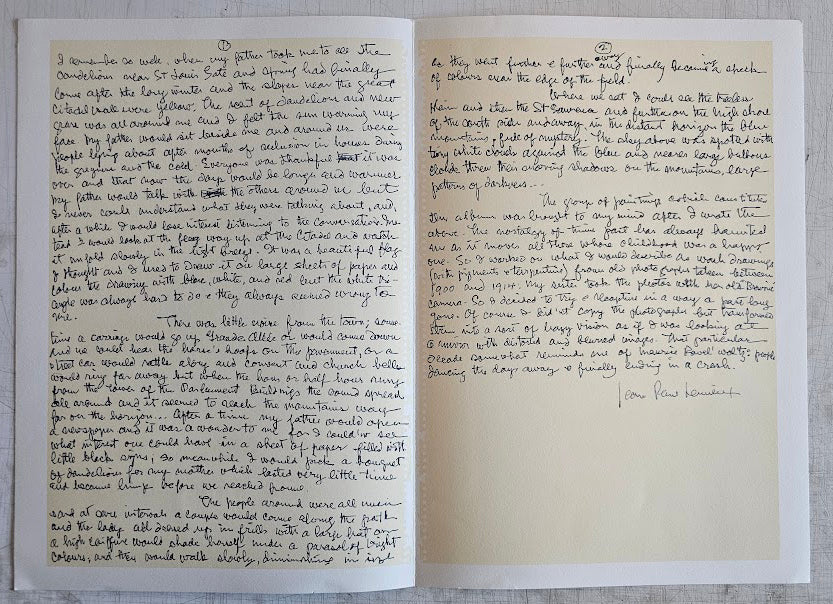 1
I remember so well, when my father took me to see the
dandelions near St Louis Gate and spring had finally
come after the long winter and the slopes near the great
Citadel walls were yellow. The scent of dandelions and new
grass was all around me and I felt the sun warming my
face. My father would sit beside me and around us were
people lying about after months of seclusion in houses during
the and the cold. Everyone was thankful that it was
over and that now the days would be longer and warmer
My father would talk with the others around us but
I never could understand what they were talking about, and,
after a while I would lose interest listening to the conversation. Ins
tead I would look at the flag way up at the Citadel and watch
it unfold slowly in the light breeze. It was a beautiful flag
I thought and I used to draw it on large sheets of paper and
colour the drawing with blue, white, and red but the white tri-
angle was always hard to do & they always seemed wrong to
me.
There was little noise from the town; some-
time a carriage would go up Grande Allée or would come down
and we would hear the horse's hoofs on the pavement, or a
street car would rattle along and convent and church bells
would ring far away but when the hour or half hour rung
from the tower of the Parliament Buildings the sound spread
all around and it seemed to reach the mountains way
far on the horizon... After a time my father would open
a newspaper and it was a wonder to me for I couldn't see
what interest one could have in a sheet of paper filled with
little black signs; so meanwhile I would pick a bouquet
of dandelions for my mother which lasted very little time
and became limp before we reached home.
The people around were all men
and at rare intervals a couple would come along the path
and the lady all dressed up in frills with a large hat on
a high coiffure would shade herself under a parasol of bright
colours; and they would walk slowly, diminishing in size
2
as they went further & further away and finally becoming a speck
of colours near the edge of the field.
Where we sat I could see the
then and then the St Lawrence and further on the high shore
of the south side and away in the distant horizon the blue
mountains, full of mystery. The sky above was spotted with
tiny white clouds against the blue and nearer large bulbous
clouds threw their moving shadows on the mountains, large
patterns of darkness...
The group of paintings which constitute
this album was brought to my mind after I wrote the
above. The nostalgy of times past has always haunted
me as it moves all those whose childhood was a happy
one. So I worked on what I would describe as wash drawings
(with pigments & terpentine) from old photographs taken between
1900 and 1914. My sister took the photos with her old Brownie
camera. So I decided to try & recapture in a way a past long
gone. Of course I didn't copy the photograph but transformed
them into a sort of hazy vision as if I was looking at
a mirror with distorted and blurred images. That particular
decade somewhat reminds me of Maurice Ravel waltz: people
dancing the days away & finally ending in a crash.
Jean Paul Lemieux